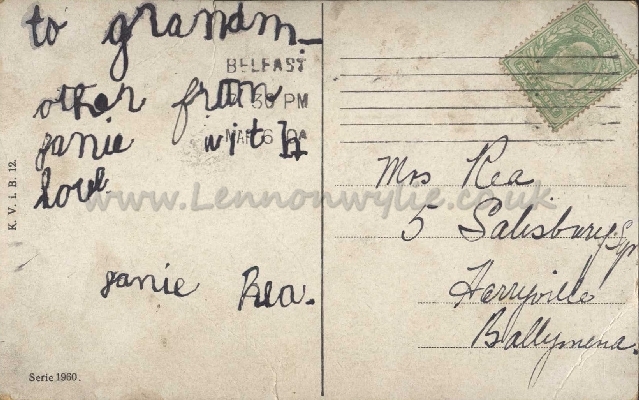 to grandm-
other from
janie with
love
janie Rea.
BELFAST
30 PM
K. V. i. B. 12.
Serie 1960.
Mrs Rea
5 Salisbury Sq.
Harryville
Ballymena.
www.Lennonwylie.co.uk